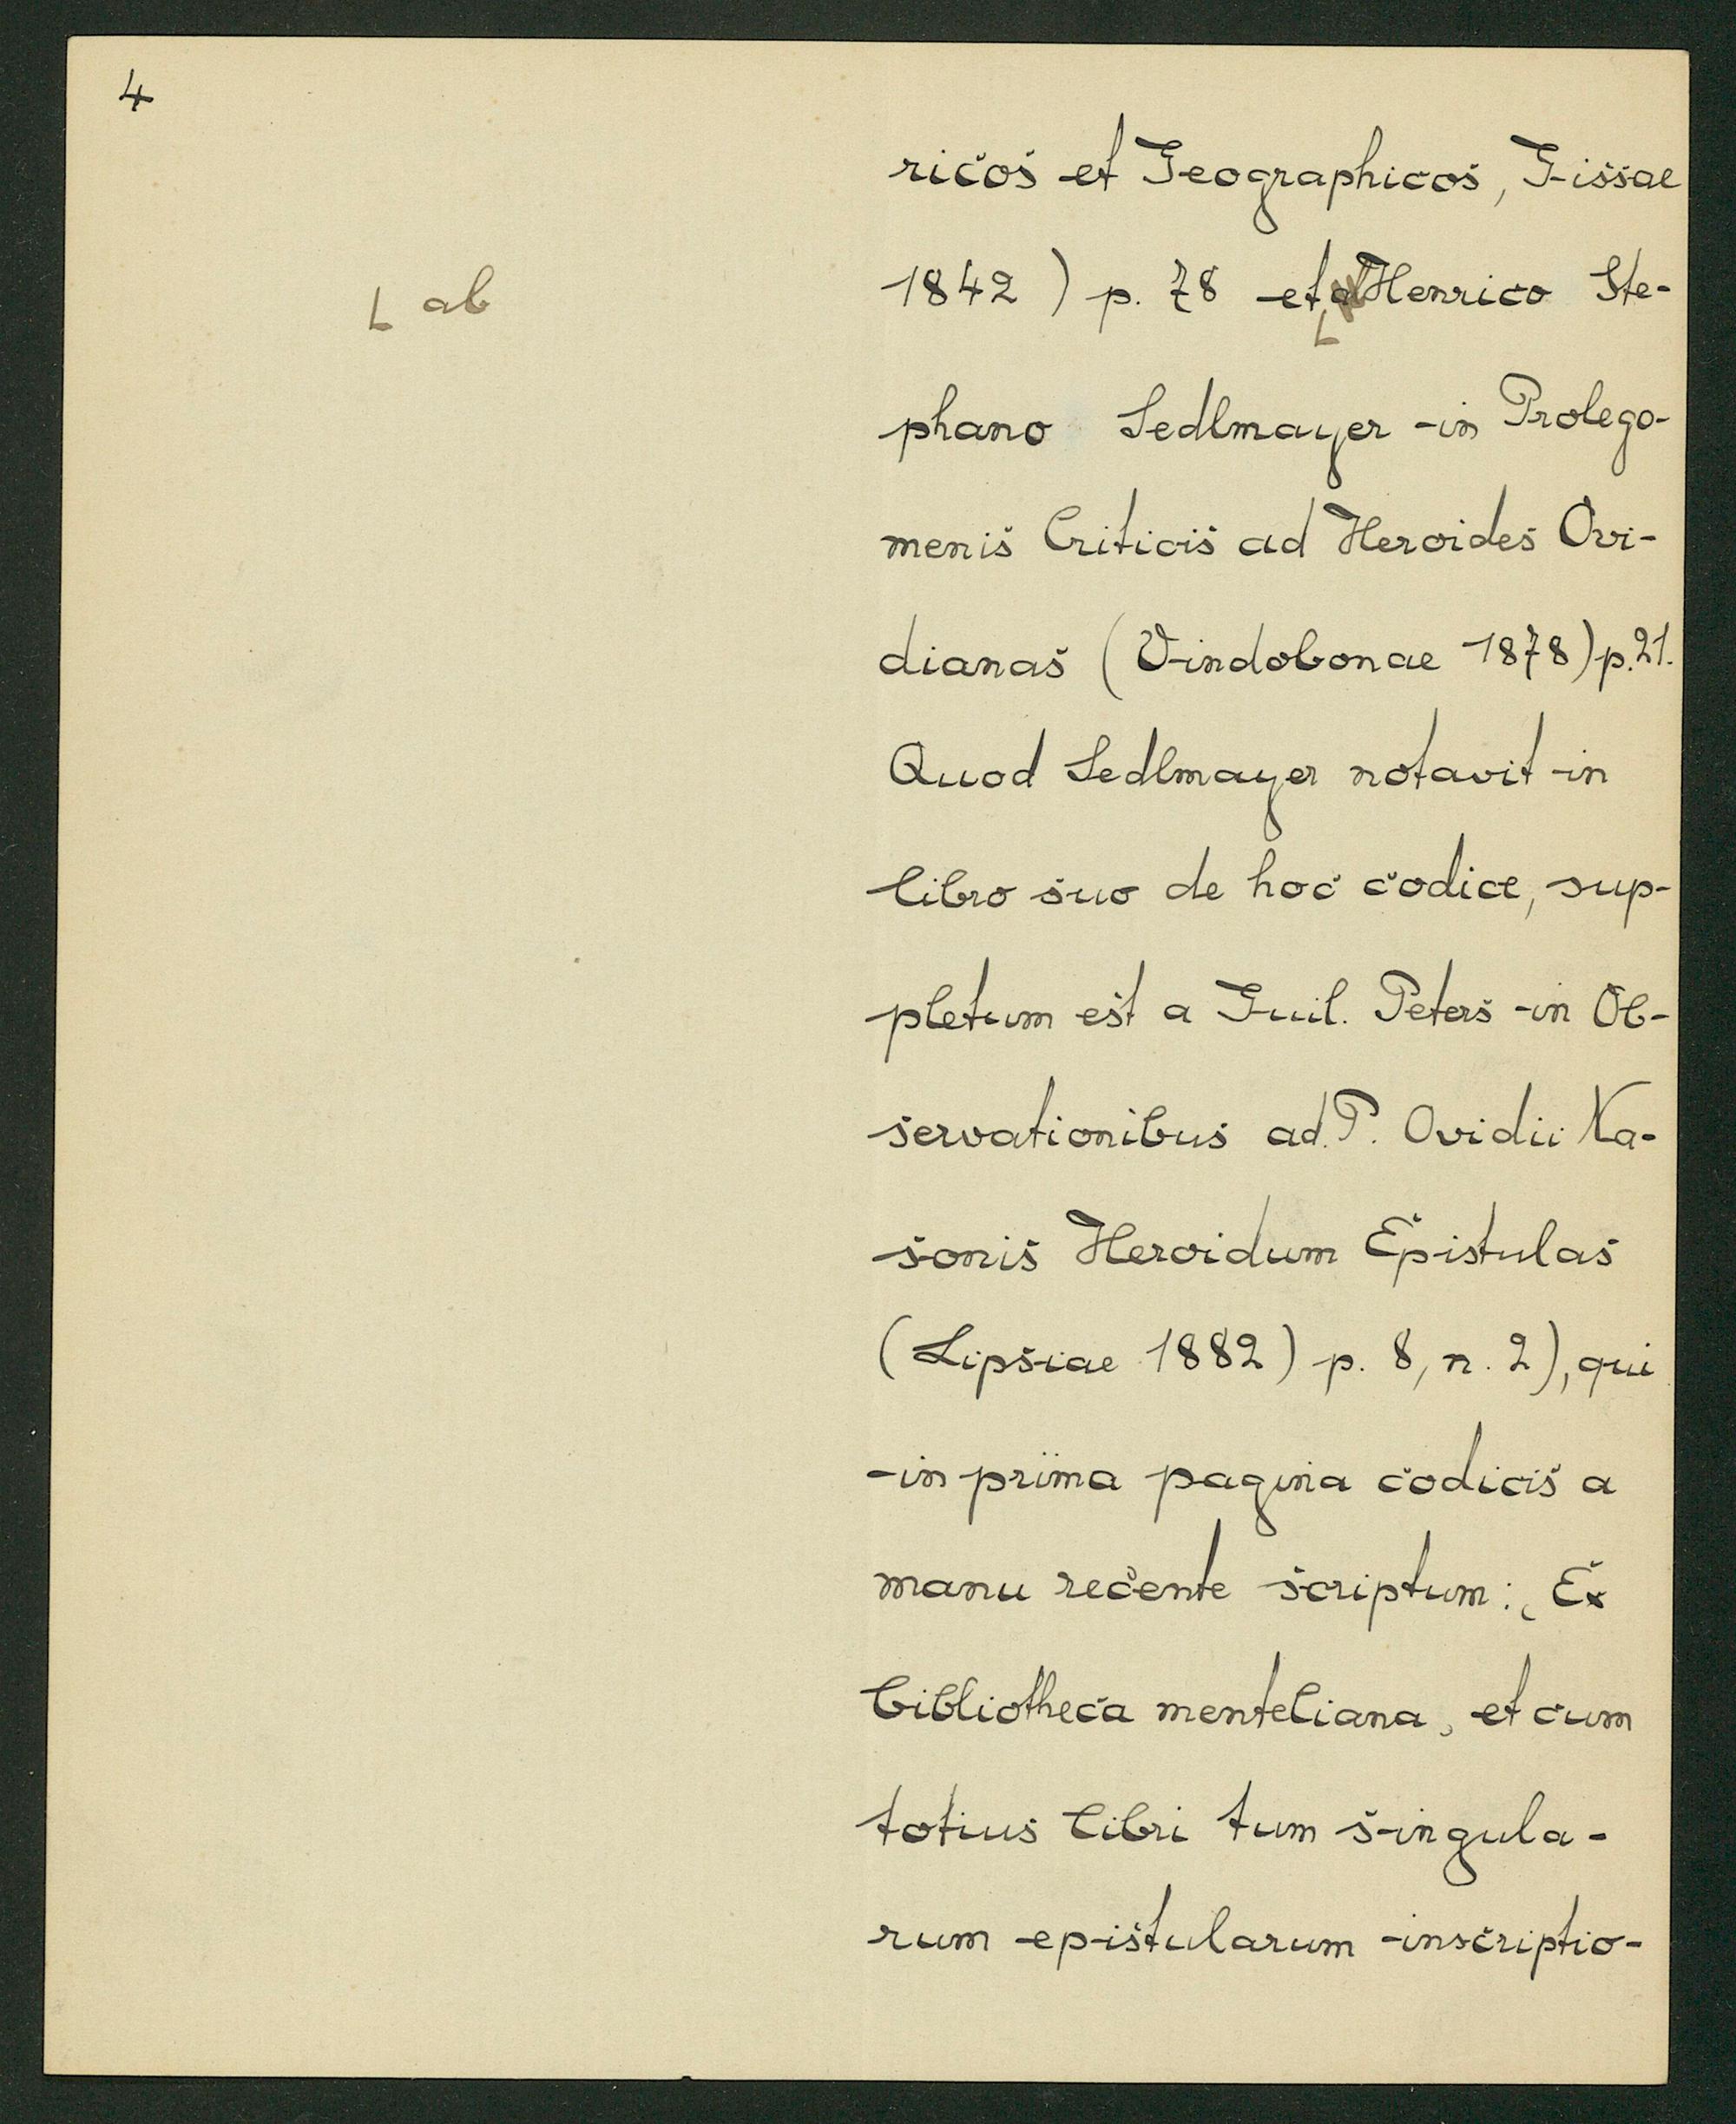 4
ricos et Geographicos, Gissae
1842) p. 78 et a Henrico Ste-
⌊ ab
phano Sedlmayer in Prolego-
menis Criticis ad Heroides Ovi-
dianas (Vindobonae 1878) p. 21.
Quod Sedlmayer notavit in
libro suo de hoc codice, sup-
pletum est a Guil. Peters in Ob-
servationibus ad P. Ovidii Na-
sonis Heroidum Epistulas
(Lipsiae 1882) p. 8, n. 2), qui
in prima pagina codicis a
manu recente scriptum: ‚Ex
bibliotheca menteliana, et cum
totius libri tum singula-
rum epistularum inscriptio-